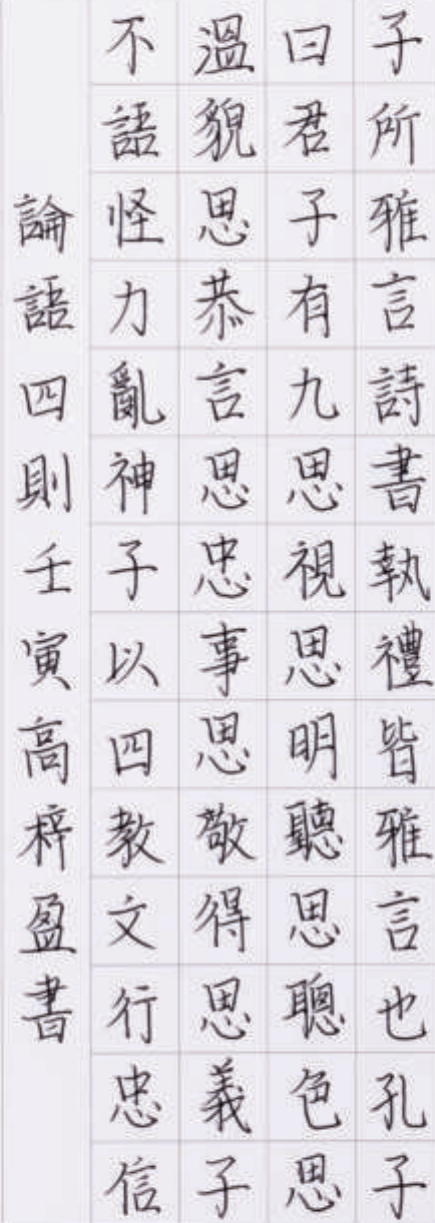 子所雅言詩書執禮皆雅言也孔子
曰君子有九思視思明聽思聰色思
溫貌思恭言思忠事思敬得思義子
不語怪力亂神子以四教文行忠信
論語四則壬寅高梓盈書